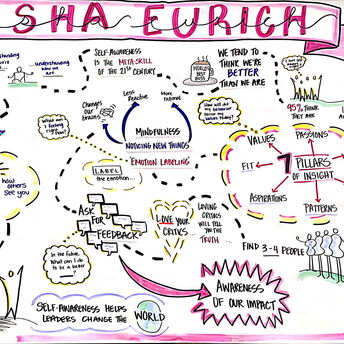 SHA EURICH
SELF-AWARENESS
IS THE META-SKILL
OF THE 21ST CENTURY
WORLD'S
BEST
BOSS
WE TEND TO
THINK WE'RE
BETTER
THAN WE ARE
...understanding
how we
are
Changes
our
brains
Less
Reactive
More
rational
How will did
my behavior
mirror my
values today?
95% THINK
THEY ARE
What am
I feeling
right now?
MINDFULNESS
NOTICING NEW THINGS
EMOTION LABELING
LABEL
the emotion...
VALUES
PASSIONS
FIT
7 PILLARS
OF INSIGHT
ASPIRATIONS
PATTERNS
how
others
see you
ASK
FOR
FEEDBACK
LOVE YOUR
CRITICS...
LOVING
CRITICS
WILL TELL
YOU THE
TRUTH
FIND 3-4 PEOPLE
In the future,
What can I do
to be a better
?
AWARENESS
OF OUR IMPACT
SELF-AWARENESS HELPS
LEADERS CHANGE THE
WORLD